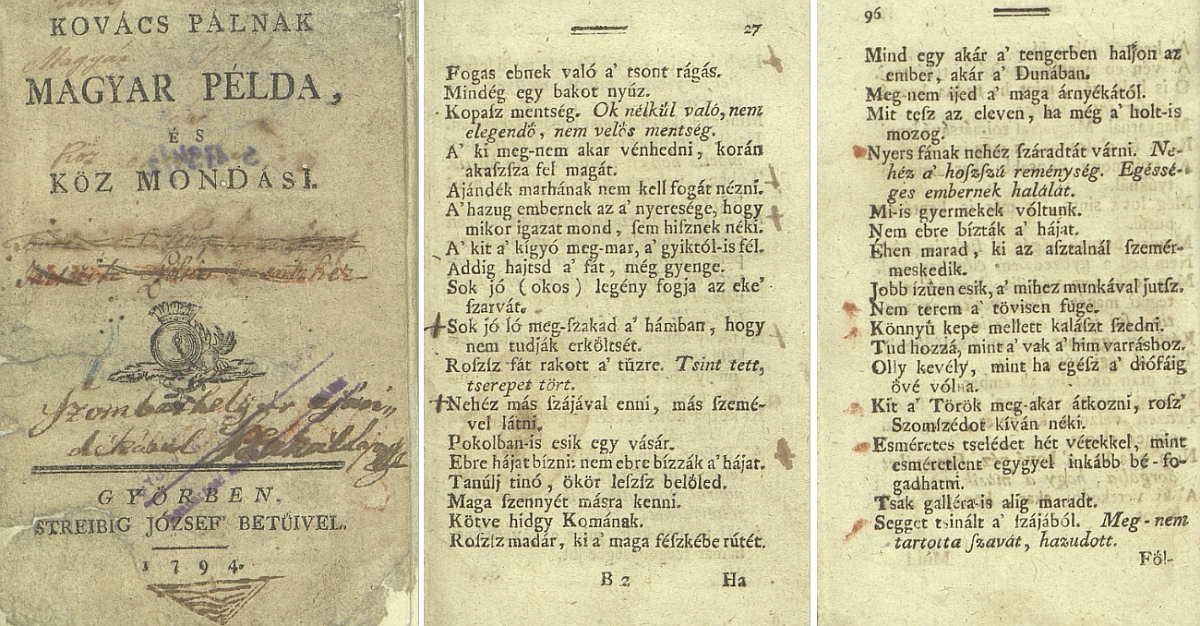 KOVÁCS PÁLNAK
Magyar
MAGYAR PÉLDA,
ÉS
KÖZ MONDÁSI.
Szombathelyi
GYŐRBEN,
STREIBIG JÓZSEF' BETŰIVEL.
1794.
27
Fogas ebnek való a' tsont rágás.
Mindég egy bakot nyúz.
Kopaſz mentség. Ok nélkűl való, nem
elegendő, nem velős mentség.
A' ki meg-nem akar vénhedni, korán
akaſzſza fel magát.
Ajándék marhának nem kell fogát nézni.
A' hazug embernek az a' nyeresége, hogy
mikor igazat mond, ſem hiſznek néki.
A' kit a' kígyó meg-mar, a' gyiktól-is fél.
Addig hajtsd a' fát, még gyenge.
Sok jó ( okos ) legény fogja az eke'
ſzarvát.
Sok jó ló meg-ſzakad a' hámban, hogy
nem tudják erköltsét.
Roſzſz fát rakott a' tűzre. Tsint tett,
tserepet tört.
Nehéz más ſzájával enni, más ſzemé-
vel látni.
Pokolban-is esik egy vásár.
Ebre hájat bízni: nem ebre bízzák a' hájat.
Tanúlj tinó, ökör leſzſz belőled.
Maga ſzennyét másra kenni.
Kötve hidgy Komának.
Roſzſz madár, ki a' maga féſzkébe rútét.
B 2 Ha
96
Mind egy akár a' tengerben haljon az
ember, akár a' Dunában.
Meg-nem ijed a' maga árnyékától.
Mit teſz az eleven, ha még a' holt-is
mozog.
Nyers fának nehéz ſzáradtát várni. Ne-
héz a' hoſzſzú reménység. Egéssé-
ges embernek halálát.
Mi-is gyermekek vóltunk.
Nem ebre bízták a' hájat.
Éhen marad, ki az aſztalnál ſzemér-
meskedik.
Jobb ízűen esik, a' mihez munkával jutſz.
Nem terem a' tövisen füge.
Könnyű kepe mellett kaláſzt ſzedni.
Tud hozzá, mint a' vak a' him varráshoz.
Olly kevély, mint ha egéſz a' diófáig
övé vólna.
Kit a' Török meg-akar átkozni, roſz'
Szomſzédot kíván néki.
Esméretes tselédet hét vétekkel, mint
esméretlent egygyel inkább bé-fo-
gadhatni.
Tsak galléra-is alig maradt.
Segget tsinált a' ſzájából. Meg-nem
tartotta ſzavát, hazudott.
Föl-